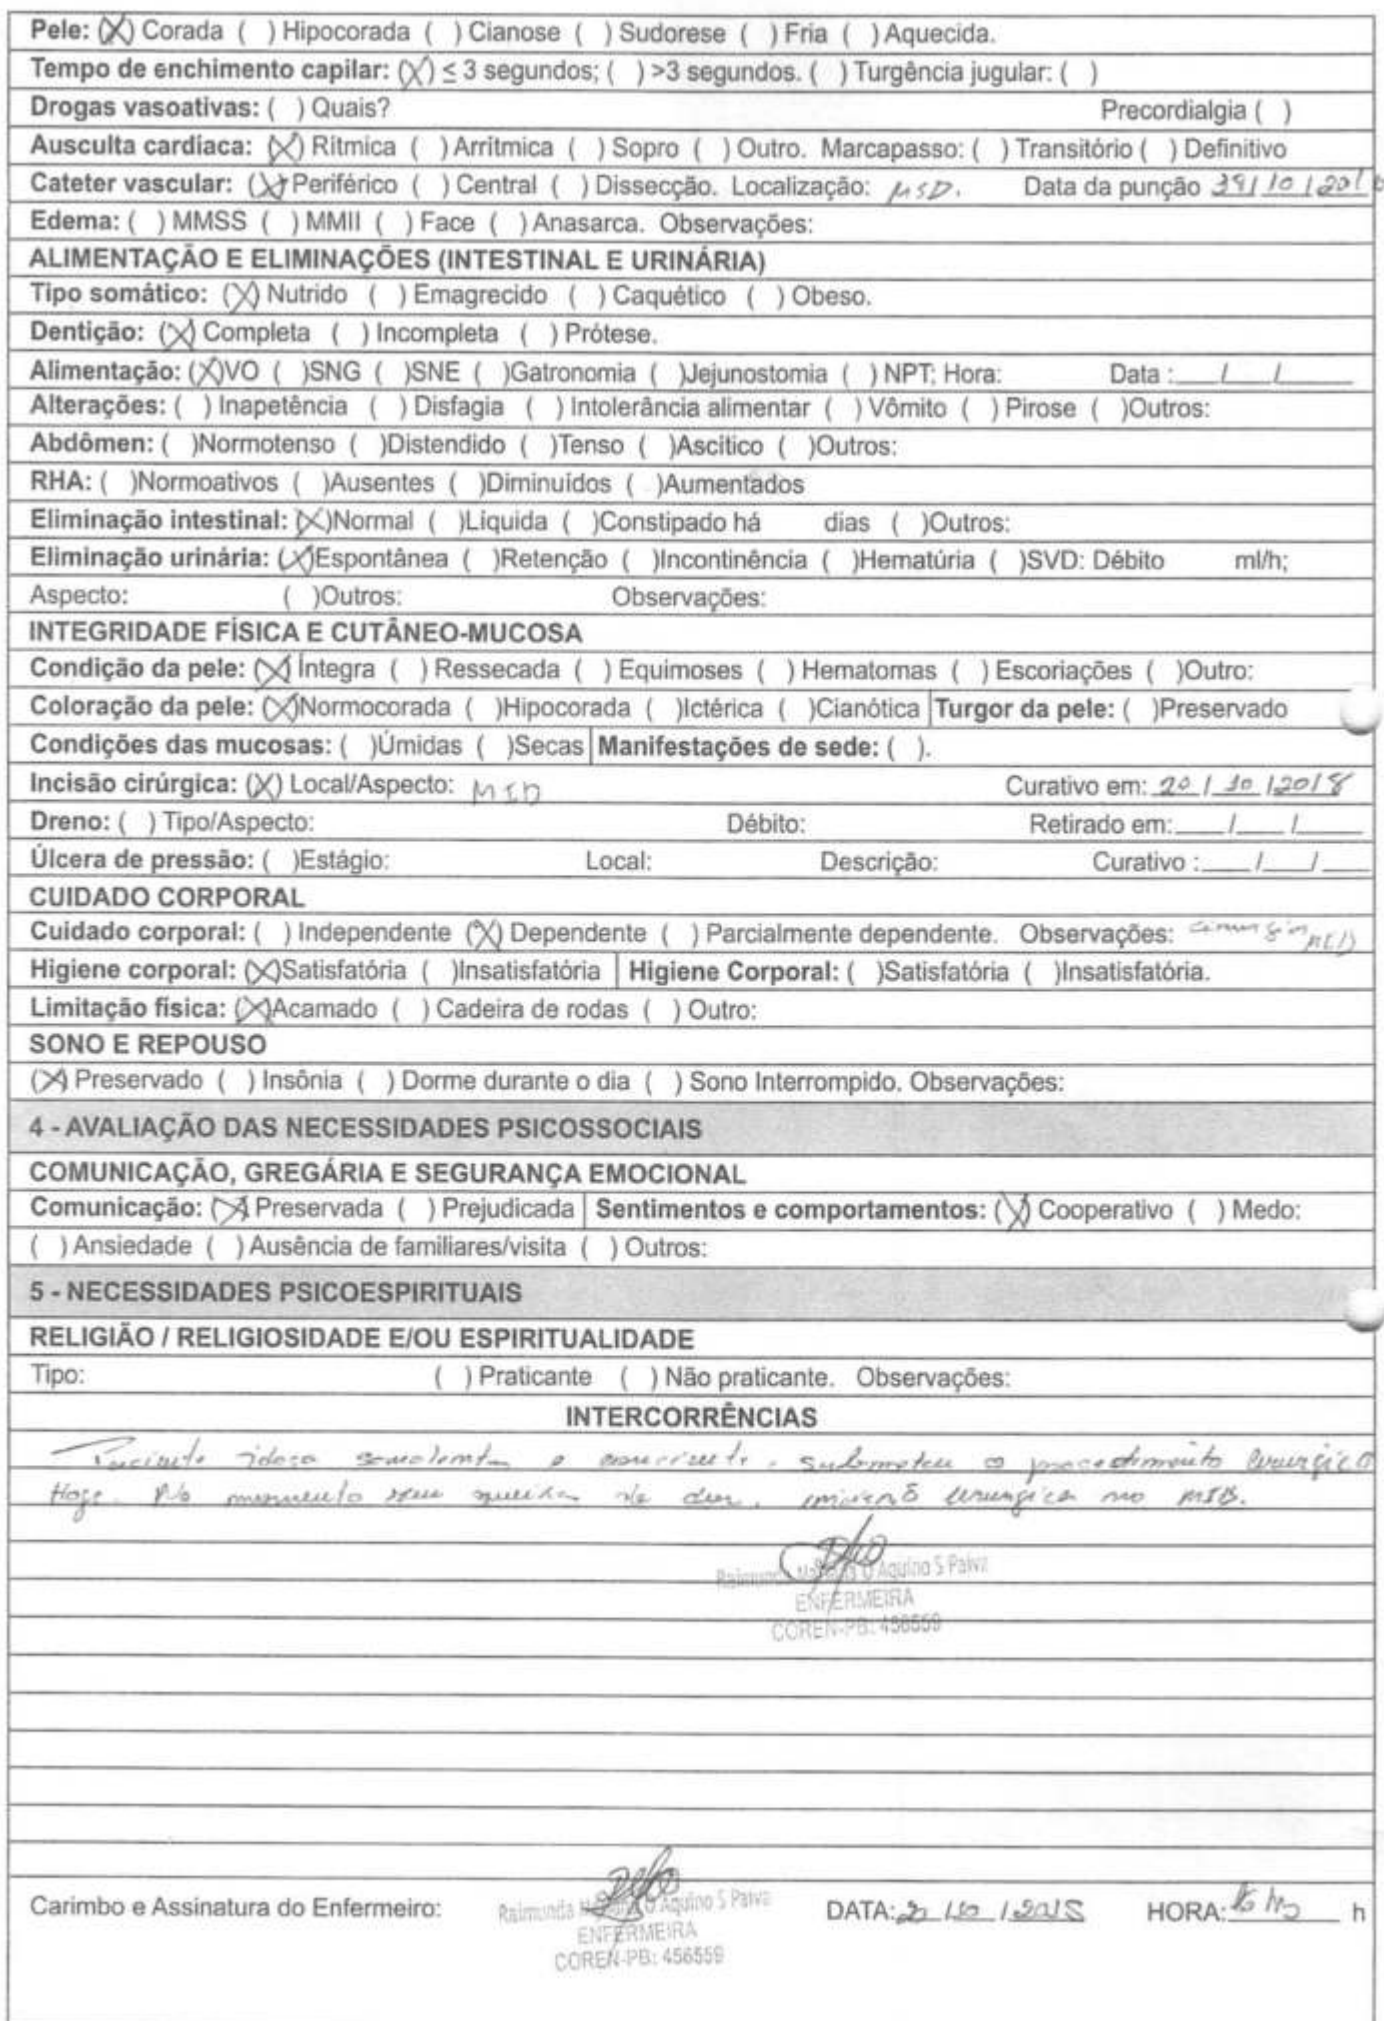 Pele: (X) Corada ( ) Hipocorada ( ) Cianose ( ) Sudorese ( ) Fria ( ) Aquecida.
Tempo de enchimento capilar: (X) ≤ 3 segundos; ( ) >3 segundos. ( ) Turgência jugular: ( )
Drogas vasoativas: ( ) Quais? Precordialgia ( )
Ausculta cardíaca: (X) Rítmica ( ) Arrítmica ( ) Sopro ( ) Outro. Marcapasso: ( ) Transitório ( ) Definitivo
Cateter vascular: (X) Periférico ( ) Central ( ) Dissecção. Localização: MSD. Data da punção
Edema: ( ) MMSS ( ) MMII ( ) Face ( ) Anasarca. Observações:
ALIMENTAÇÃO E ELIMINAÇÕES (INTESTINAL E URINÁRIA)
Tipo somático: (X) Nutrido ( ) Emagrecido ( ) Caquético ( ) Obeso.
Dentição: (X) Completa ( ) Incompleta ( ) Prótese.
Alimentação: (X)VO ( )SNG ( )SNE ( )Gatronomia ( )Jejunostomia ( ) NPT; Hora: Data :___/___/____
Alterações: ( ) Inapetência ( ) Disfagia ( ) Intolerância alimentar ( ) Vômito ( ) Pirose ( )Outros:
Abdômen: ( )Normotenso ( )Distendido ( )Tenso ( )Ascitico ( )Outros:
RHA: ( )Normoativos ( )Ausentes ( )Diminuídos ( )Aumentados
Eliminação intestinal: (X)Normal ( )Líquida ( )Constipado há dias ( )Outros:
Eliminação urinária: (X)Espontânea ( )Retenção ( )Incontinência ( )Hematúria ( )SVD: Débito ml/h;
Aspecto: ( )Outros: Observações:
INTEGRIDADE FÍSICA E CUTÂNEO-MUCOSA
Condição da pele: (X) Íntegra ( ) Ressecada ( ) Equimoses ( ) Hematomas ( ) Escoriações ( )Outro:
Coloração da pele: (X)Normocorada ( )Hipocorada ( )Ictérica ( )Cianótica Turgor da pele: ( )Preservado
Condições das mucosas: ( )Úmidas ( )Secas Manifestações de sede: ( ).
Incisão cirúrgica: (X) Local/Aspecto: MID Curativo em: 20/10/2018
Dreno: ( ) Tipo/Aspecto: Débito: Retirado em:___/___/____
Úlcera de pressão: ( )Estágio: Local: Descrição: Curativo :___/___/___
CUIDADO CORPORAL
Cuidado corporal: ( ) Independente (X) Dependente ( ) Parcialmente dependente. Observações: MID
Higiene corporal: (X)Satisfatória ( )Insatisfatória Higiene Corporal: ( )Satisfatória ( )Insatisfatória.
Limitação física: (X)Acamado ( ) Cadeira de rodas ( ) Outro:
SONO E REPOUSO
(X) Preservado ( ) Insônia ( ) Dorme durante o dia ( ) Sono Interrompido. Observações:
4 - AVALIAÇÃO DAS NECESSIDADES PSICOSSOCIAIS
COMUNICAÇÃO, GREGÁRIA E SEGURANÇA EMOCIONAL
Comunicação: (X) Preservada ( ) Prejudicada Sentimentos e comportamentos: (X) Cooperativo ( ) Medo:
( ) Ansiedade ( ) Ausência de familiares/visita ( ) Outros:
5 - NECESSIDADES PSICOESPIRITUAIS
RELIGIÃO / RELIGIOSIDADE E/OU ESPIRITUALIDADE
Tipo: ( ) Praticante ( ) Não praticante. Observações:
INTERCORRÊNCIAS
Paciente idosa sonolenta e consciente. submeteu a procedimento cirurgico
Hoje. No momento sem queixa de dor. cirurgica no MID.
Raimunda O Aquino S Paiva
ENFERMEIRA
COREN-PB: 456559
Carimbo e Assinatura do Enfermeiro: Raimunda O Aquino S Paiva DATA: HORA: h
ENFERMEIRA
COREN-PB: 456559